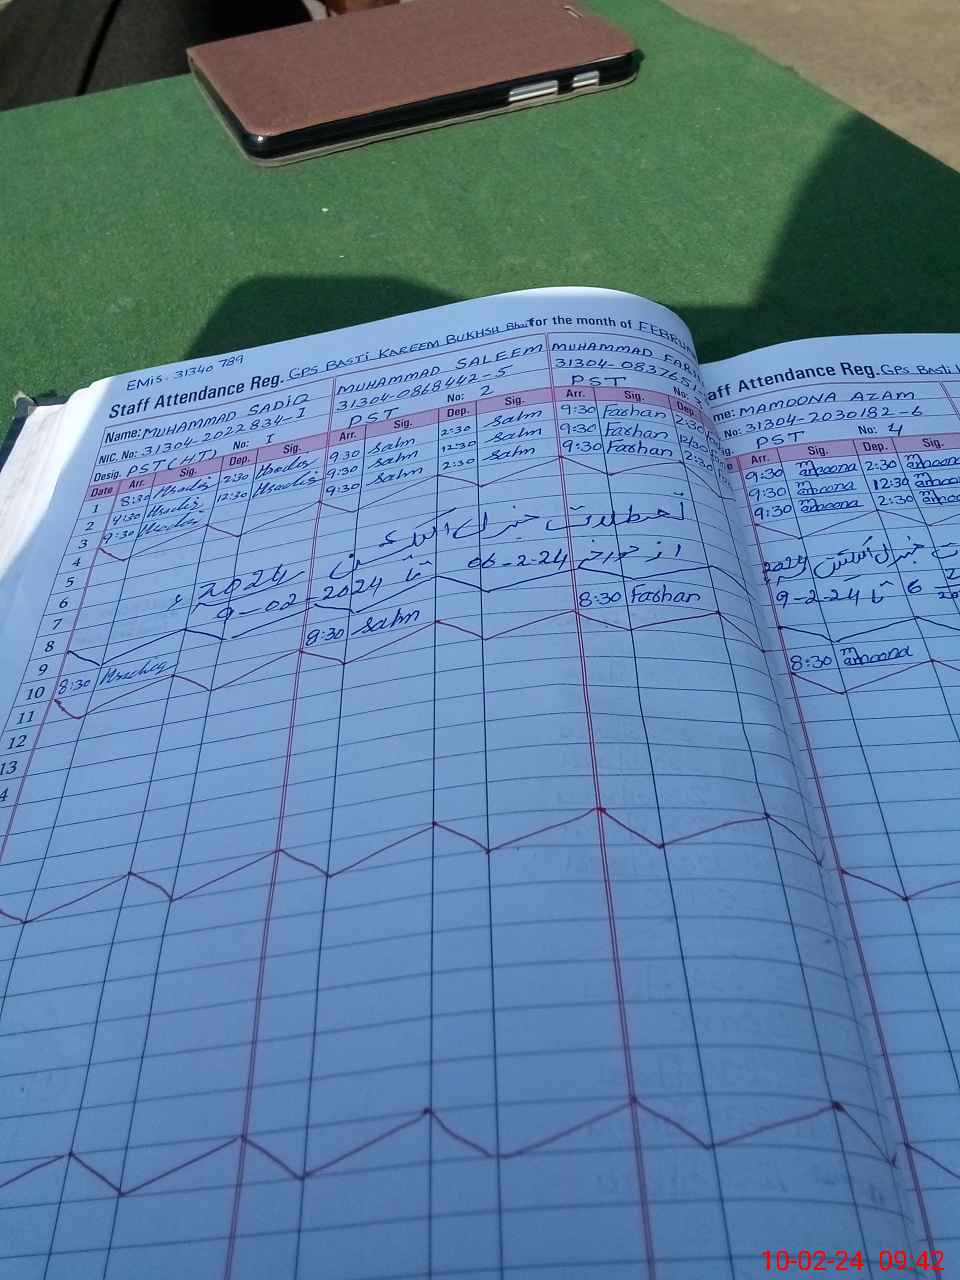 EMIS. 31340 789
Staff Attendance Reg. GPS BASTI KAREEM BUKHSH for the month of FEBRU
Name: MUHAMMAD SADIQ MUHAMMAD SALEEM MUHAMMAD FAR
NIC. No: 31304-2022834-1 31304-0868442-5 31304-083765
Desig. PST(HT) No: 1 PST No: 2 PST
Date Arr. Sig. Dep. Sig. Arr. Sig. Dep. Sig. Arr. Sig. Dep.
1 8:30 2:30 9:30 Salm 2:30 Salm 9:30 Farhan 2:30
2 9:30 12:30 9:30 Salm 12:30 Salm 9:30 Farhan 12:30
3 9:30 9:30 Salm 2:30 Salm 9:30 Farhan 2:30
4
5 تعطیلات جنرل الیکشن 2024ء
6 از مورخہ 06-2-24 تا 9-02-2024
7
8
9
10 8:30 8:30 Salm 8:30 Farhan
11
12
13
4
aff Attendance Reg. GPS Basti
me: MAMOONA AZAM
No: 31304-2030182-6
PST No: 4
Arr. Sig. Dep. Sig.
9:30 mamoona 2:30
9:30 mamoona 12:30
9:30 mamoona 2:30
ت جنرل الیکشن 2024ء
6 تا 9-2-24
8:30 mamoona
10-02-24 09:42